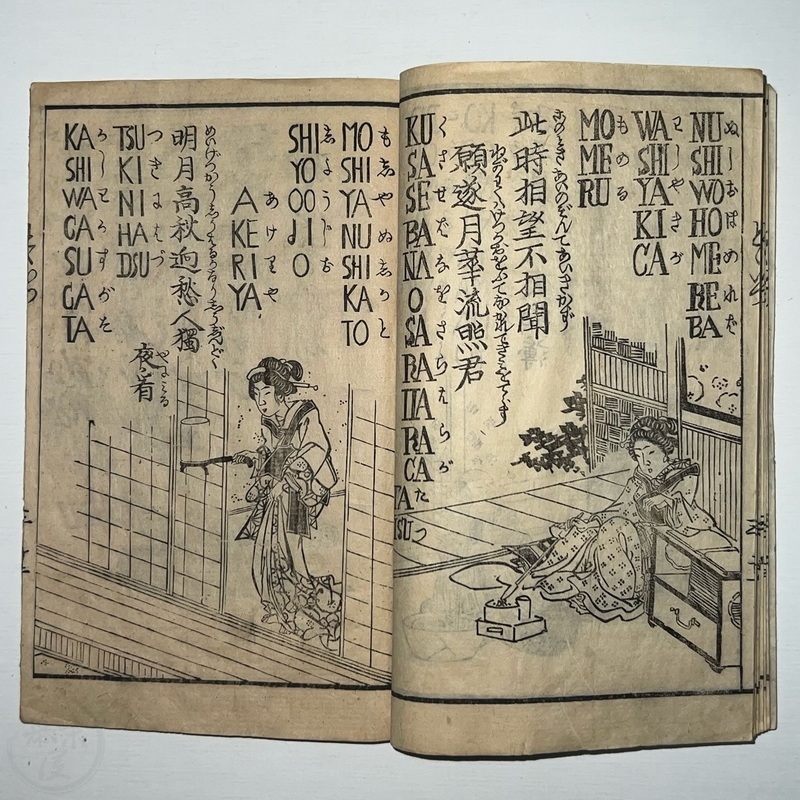 NU SHI WO HO ME RE BA
ぬしをほめれば
WA SHI YA KI GA
わしやきが
MO ME RU
もめる
此時相望不相聞
願遂月華流照君
KU SA SE BA NA O SA RA HA RA GA TA TSU
くさせばなをさらはらがたつ
MO SHI YA NU SHI KA TO
もしやぬしかと
SHI YO O JI O
しようじを
A KE RI YA
あけりや
明月高秋迥愁人獨
夜看
TSU KI NI HA DSU
つきにはづ
KA SHI WA GA SU GA TA